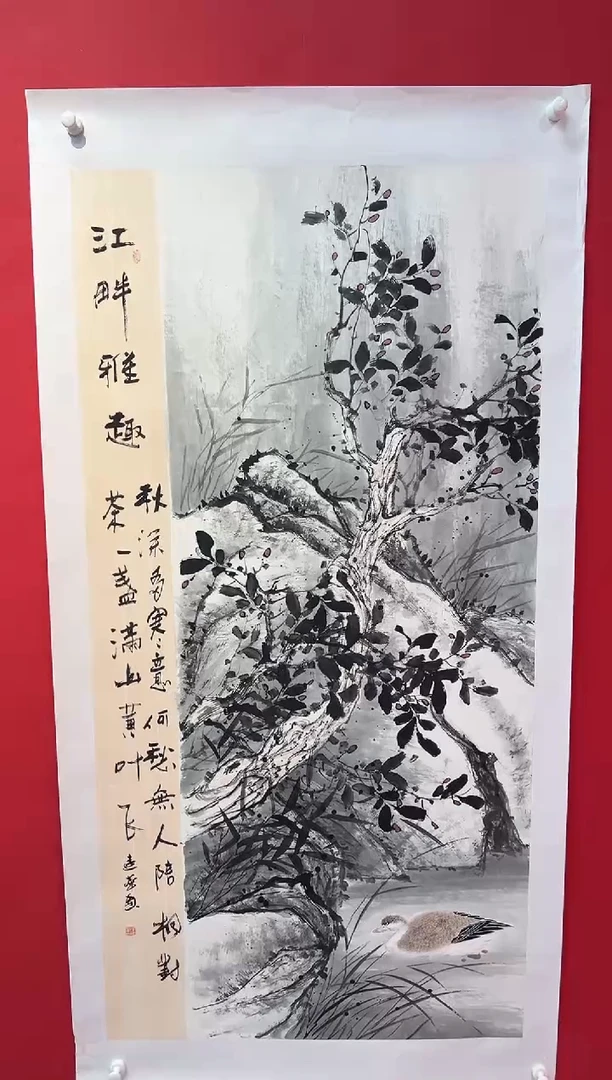 江畔雅趣
秋深多寒意何愁無人陪相對
茶一盏滿山黄叶飞